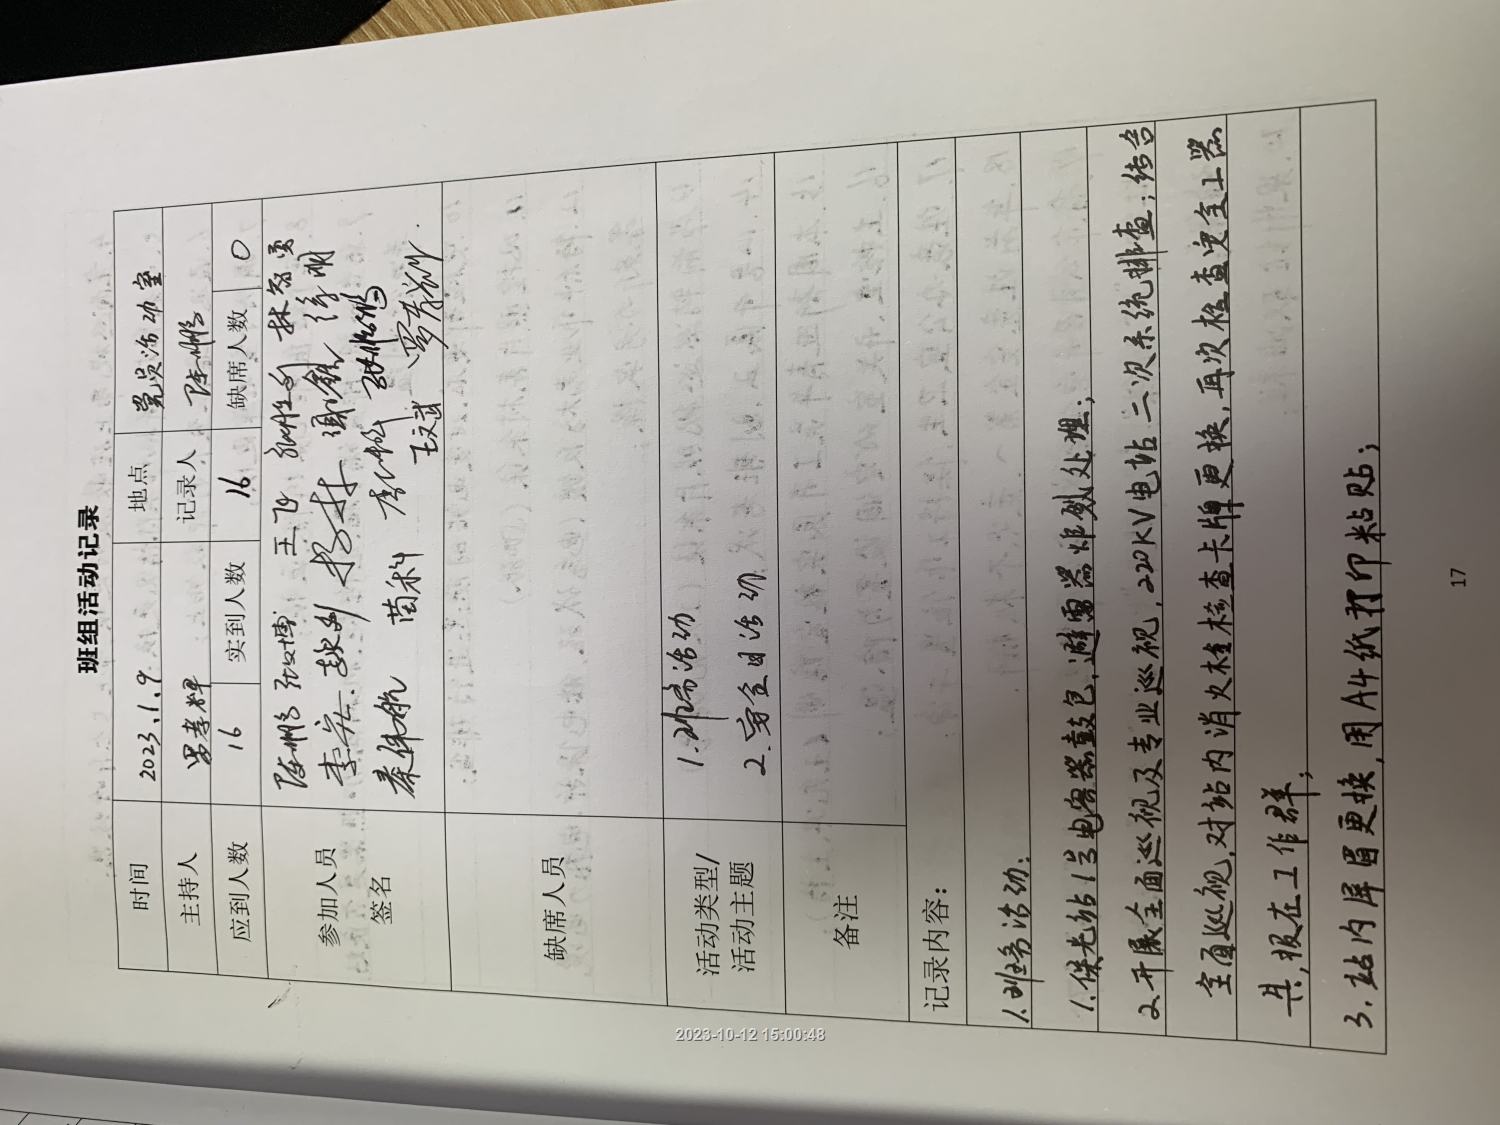 班组活动记录
时间 2023.1.9 地点 党员活动室
主持人 记录人 陈鹏
应到人数 16 实到人数 16 缺席人数 0
参加人员
签名
陈鹏 张文博 王飞
李宏 赵利 杨林 徐明
秦伟航 苗科
王文武
缺席人员
活动类型/
活动主题
1.班务活动
2.安全日活动
备注
记录内容：
1.班务活动：
1.侯光站1号电容器鼓包，避雷器炸裂处理；
2.开展全面巡视及专业巡视，220KV电站二次系统排查；结合
全面巡视，对站内消火栓检查卡牌更换，再次检查安全工器
具，报在工作群；
3.站内屏眉更换，用A4纸打印粘贴；
17
2023-10-12 15:00:48